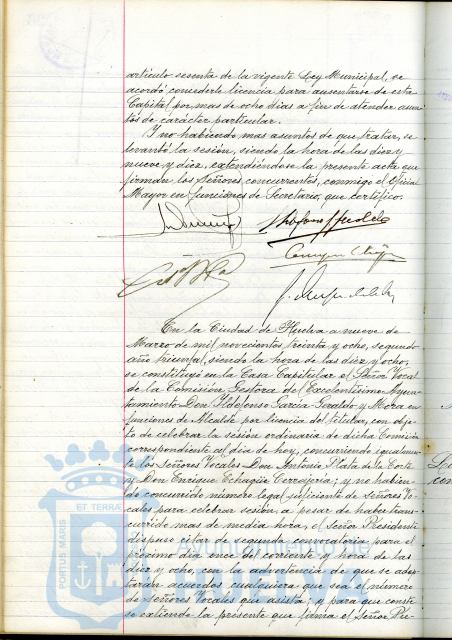 artículo sesenta de la vigente Ley Municipal, se
acordó concederle licencia para ausentarse de esta
Capital por mas de ocho dias a fin de atender asun-
tos de carácter particular.
Y no habiendo mas asuntos de que tratar, se
levantó la sesión, siendo la hora de las diez y
nueve y diez, extendiéndose la presente acta que
firman los Señores concurrentes, conmigo el Oficial
Mayor en funciones de Secretario, que certifico.
En la Ciudad de Huelva a nueve de
Marzo de mil novecientos treinta y ocho, segundo
año triunfal, siendo la hora de las diez y ocho,
se constituyó en la Casa Capitular el Señor Vocal
de la Comisión Gestora del Excelentísimo Ayun-
tamiento Don Ildefonso García Geraldo y Mora en
funciones de Alcalde por licencia del titular, con obje-
to de celebrar la sesión ordinaria de dicha Comisión
correspondiente al dia de hoy, concurriendo igualmen-
te los Señores Vocales Don Antonio Plata de la Corte
y Don Enrique Echagüe Cerrajería; y no habien-
do concurrido número legal suficiente de Señores Vo-
cales para celebrar sesión, a pesar de haber trans-
currido mas de media hora, el Señor Presidente
dispuso citar de segunda convocatoria para el
próximo dia once del corriente y hora de las
diez y ocho, con la advertencia de que se adop-
tarán acuerdos cualquiera que sea el número
de Señores Vocales que asista; y para que conste
se extiende la presente que firma el Señor Pre-
PORTUS MARIS
ET TERRA